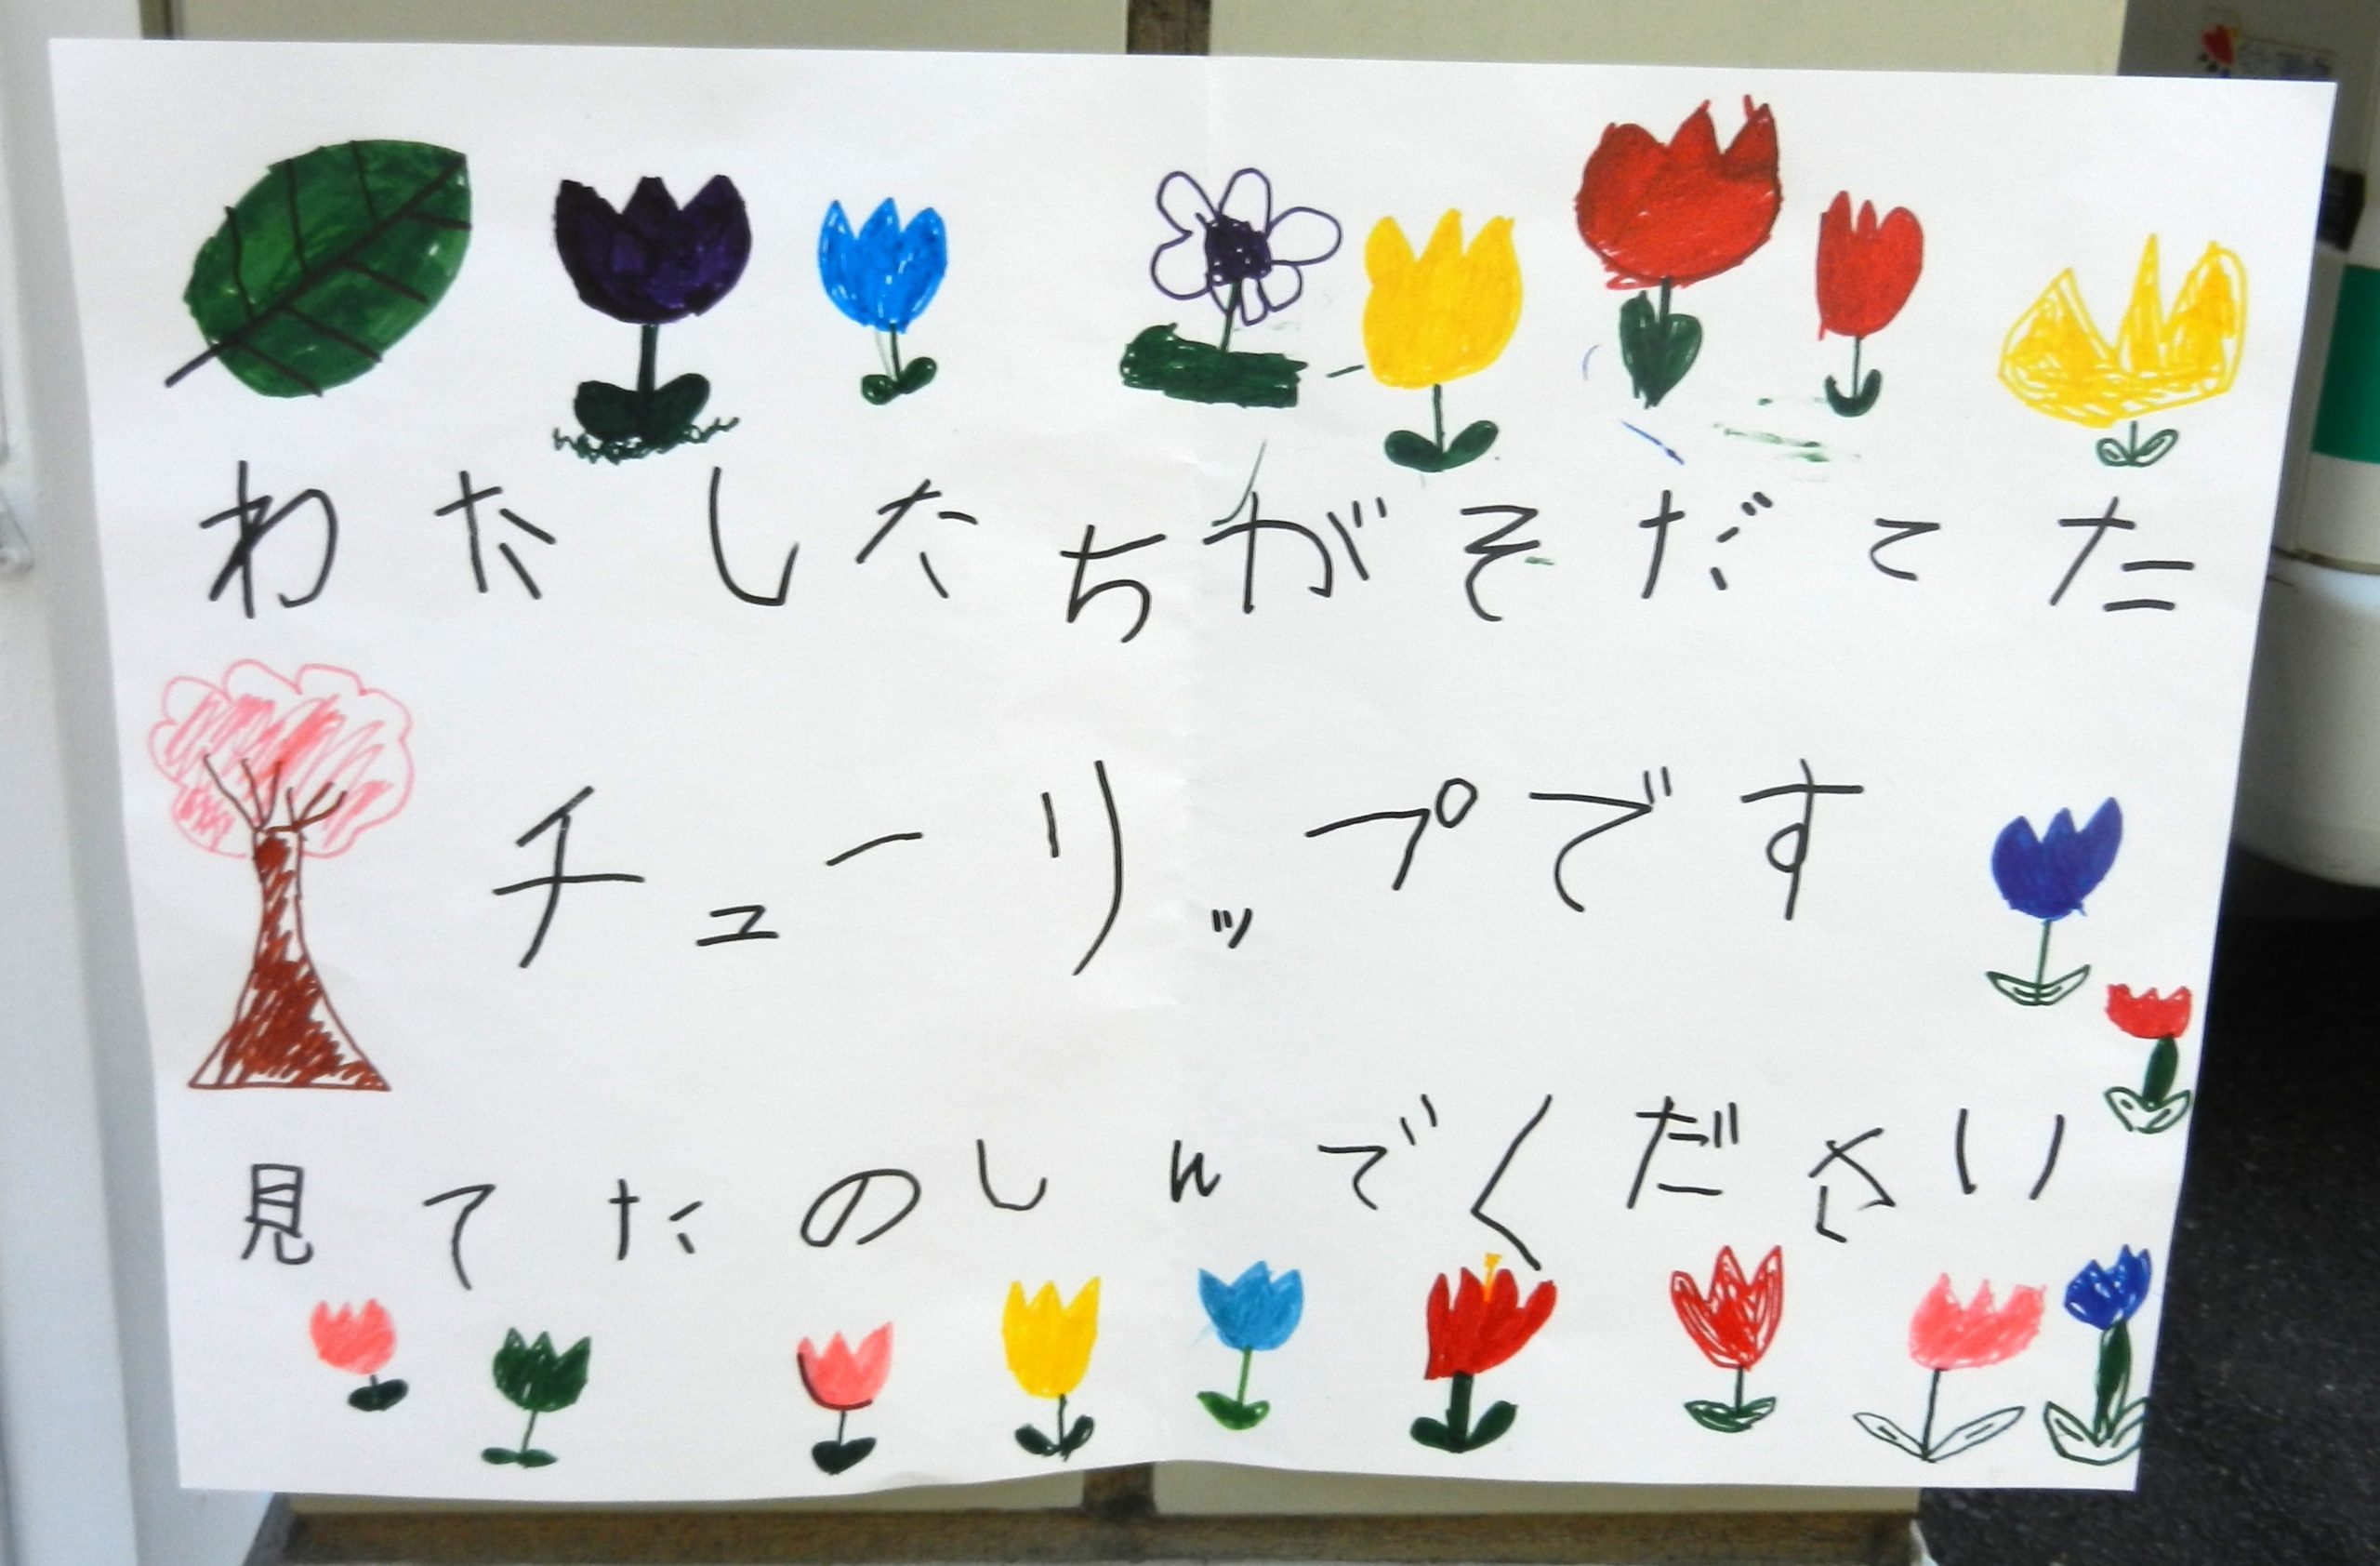 わたしたちがそだてた
チューリップです
見てたのしんでください